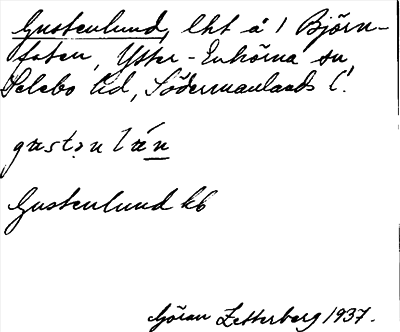 Gustenlund, lht å 1 Björn-
foten, Ytter-Enhörna sn,
Selebo hd, Södermanlands l.
gɷstɘnlɷ́n
Gustenlund kb
Göran Zetterberg 1937.